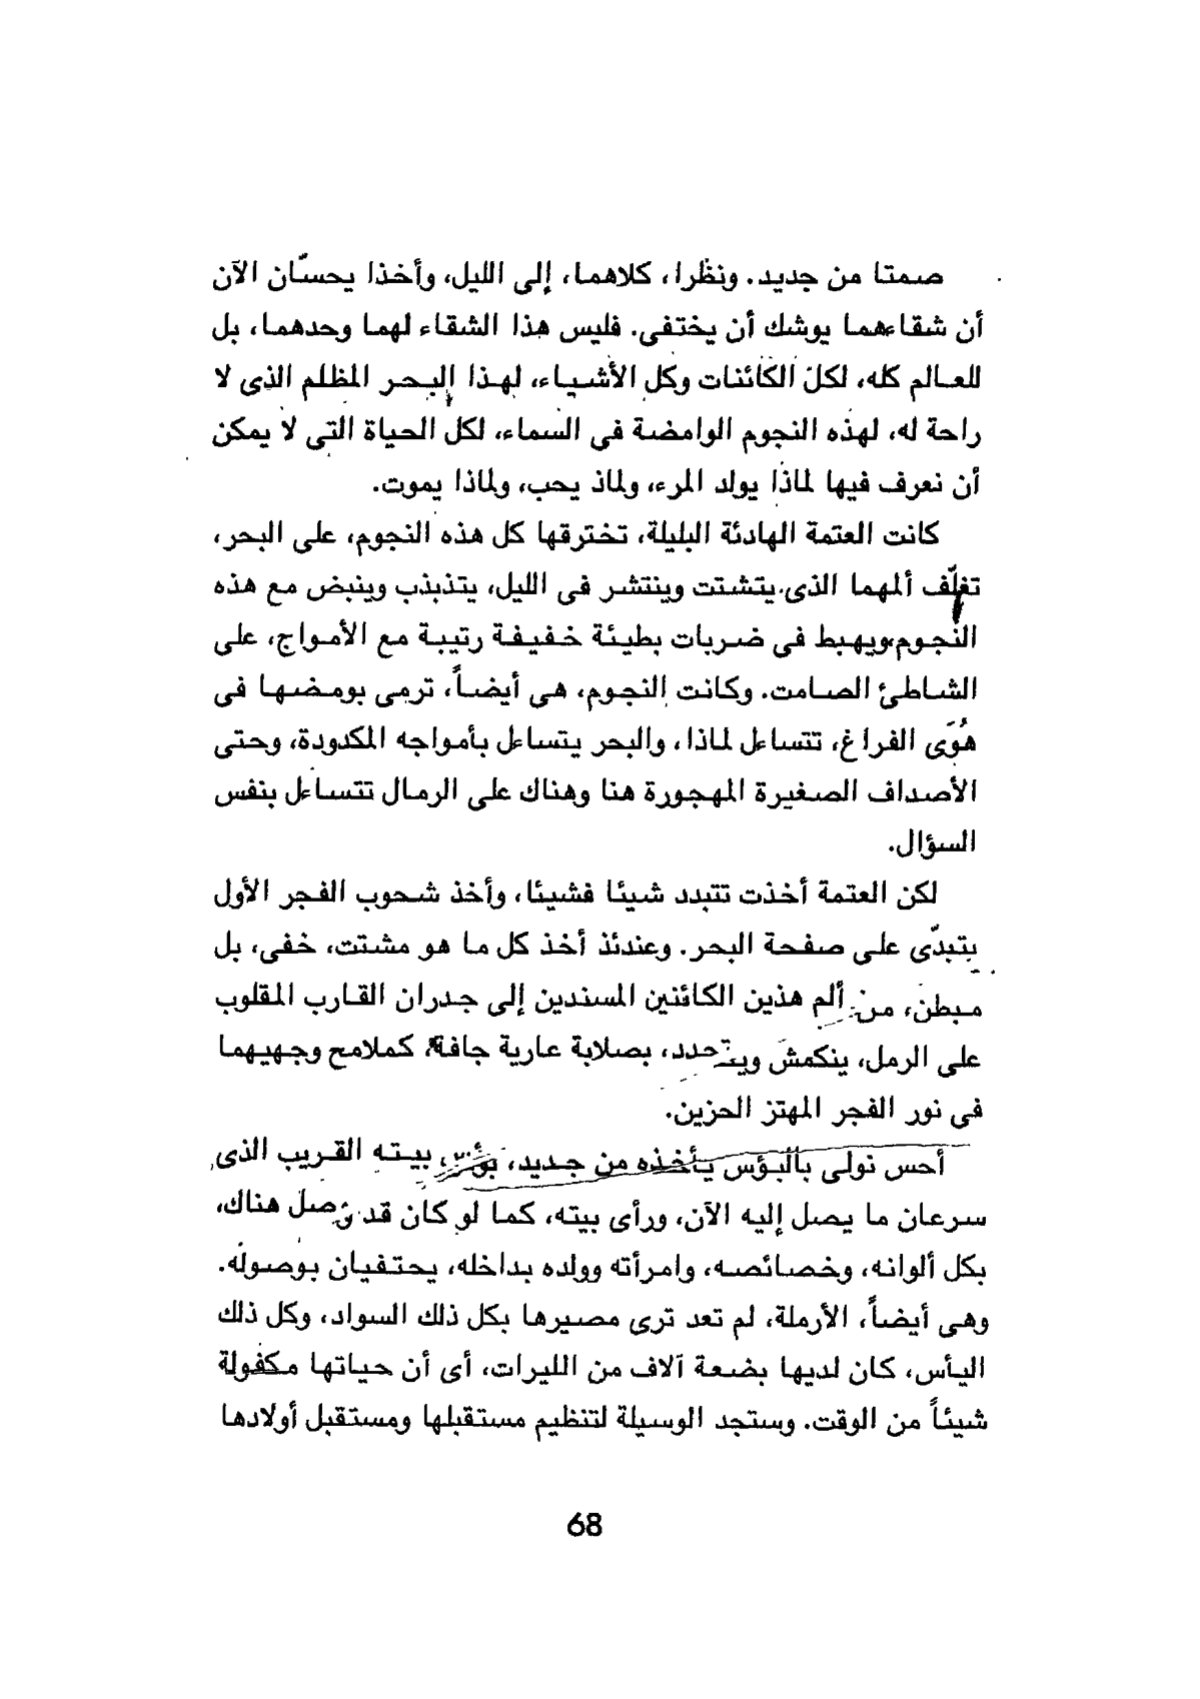 صمتا من جديد. ونظرا، كلاهما، إلى الليل، وأخذا يحسّان الآن
أن شقاءهما يوشك أن يختفى. فليس هذا الشقاء لهما وحدهما، بل
للعالم كله، لكل الكائنات وكل الأشياء، لهذا البحر المظلم الذى لا
راحة له، لهذه النجوم الوامضة فى السماء، لكل الحياة التى لا يمكن
أن نعرف فيها لماذا يولد المرء، ولماذ يحب، ولماذا يموت.
كانت العتمة الهادئة البليلة، تخترقها كل هذه النجوم، على البحر،
تغلّف ألمهما الذى يتشتت وينتشر فى الليل، يتذبذب وينبض مع هذه
النجوم، ويهبط فى ضربات بطيئة خفيفة رتيبة مع الأمواج، على
الشاطئ الصامت. وكانت النجوم، هى أيضاً، ترمى بومضها فى
هُوَى الفراغ، تتساءل لماذا، والبحر يتساءل بأمواجه المكدودة، وحتى
الأصداف الصغيرة المهجورة هنا وهناك على الرمال تتساءل بنفس
السؤال.
لكن العتمة أخذت تتبدد شيئا فشيئا، وأخذ شحوب الفجر الأول
يتبدّى على صفحة البحر. وعندئذ أخذ كل ما هو مشتت، خفى، بل
مبطن، من ألم هذين الكائنين المسندين إلى جدران القارب المقلوب
على الرمل، ينكمش ويتحدد، بصلابة عارية جافة، كملامح وجهيهما
فى نور الفجر المهتز الحزين.
أحس نولى بالبؤس يأخذه من جديد، بؤس بيته القريب الذى
سرعان ما يصل إليه الآن، ورأى بيته، كما لو كان قد وصل هناك،
بكل ألوانه، وخصائصه، وامرأته وولده بداخله، يحتفيان بوصوله.
وهى أيضاً، الأرملة، لم تعد ترى مصيرها بكل ذلك السواد، وكل ذلك
اليأس، كان لديها بضعة آلاف من الليرات، أى أن حياتها مكفولة
شيئاً من الوقت. وستجد الوسيلة لتنظيم مستقبلها ومستقبل أولادها
68